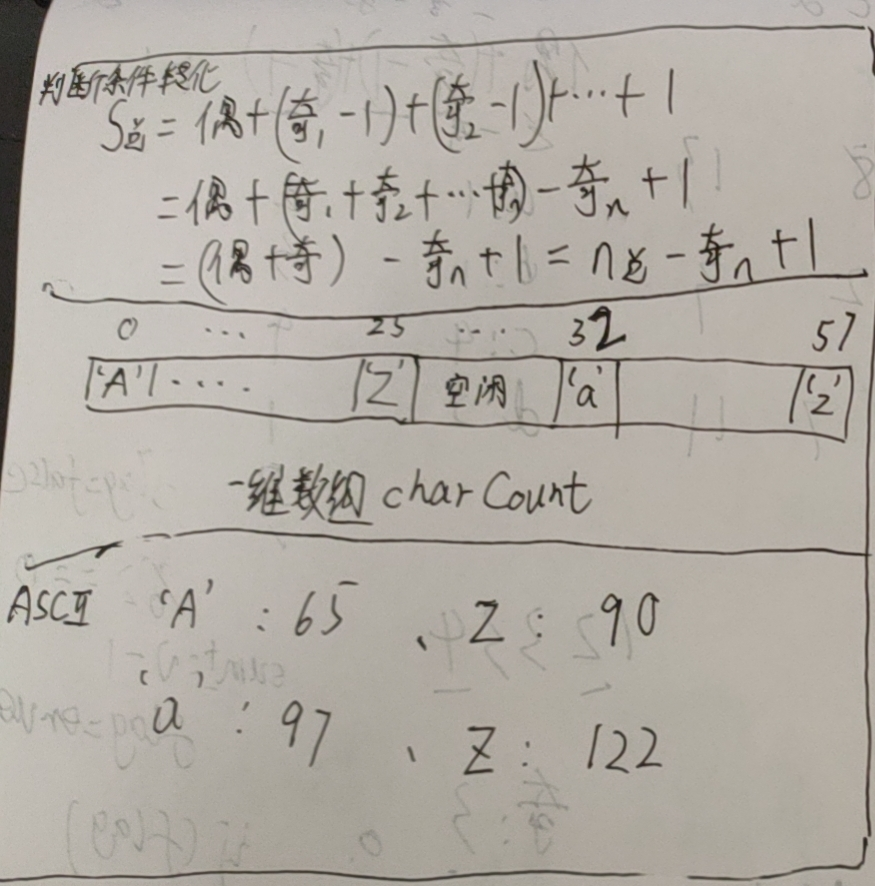 判断条件转化
S总 = 偶+(奇₁-1)+(奇₂-1)+…+1
=偶+(奇₁+奇₂+…+奇ₙ)-奇ₙ+1
=(偶+奇) - 奇ₙ+1 = n总-奇ₙ+1
0 … 25 … 32 57
'A' ···· 'Z' 空闲 'a' 'z'
一维数组 charCount
ASCII 'A' : 65 、Z : 90
'a' : 97 、Z : 122